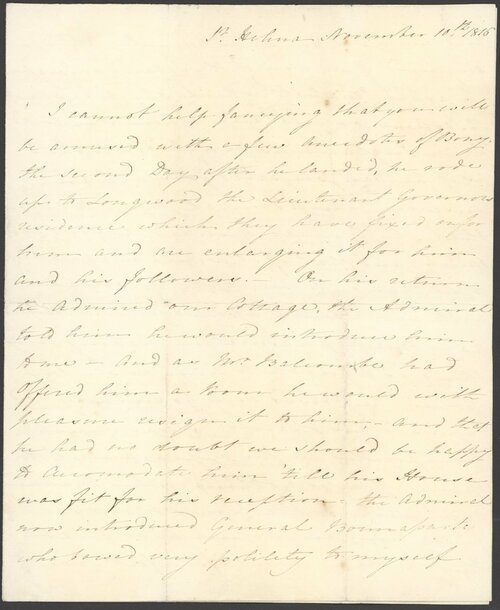 St. Helena November 10th. 1815
I cannot help fancying that you will
be amused with a few anecdots of Bony.
the second Day, after he landed, he rode
up to Longwood the Lieutenant Governors
residence which they have fixed on for
him and are enlarging it for him
and his followers. – On his return
he admired our Cottage, the Admiral
told him he would introduce him
to me – and as Mr. Balcombe had
offered him a room he would with
pleasure resign it to him, – and that
he had no doubt we should be happy
to accomodate him 'till his House
was fit for his reception – the Admiral
now introduced General Bounaparte
who bowed very politely to myself